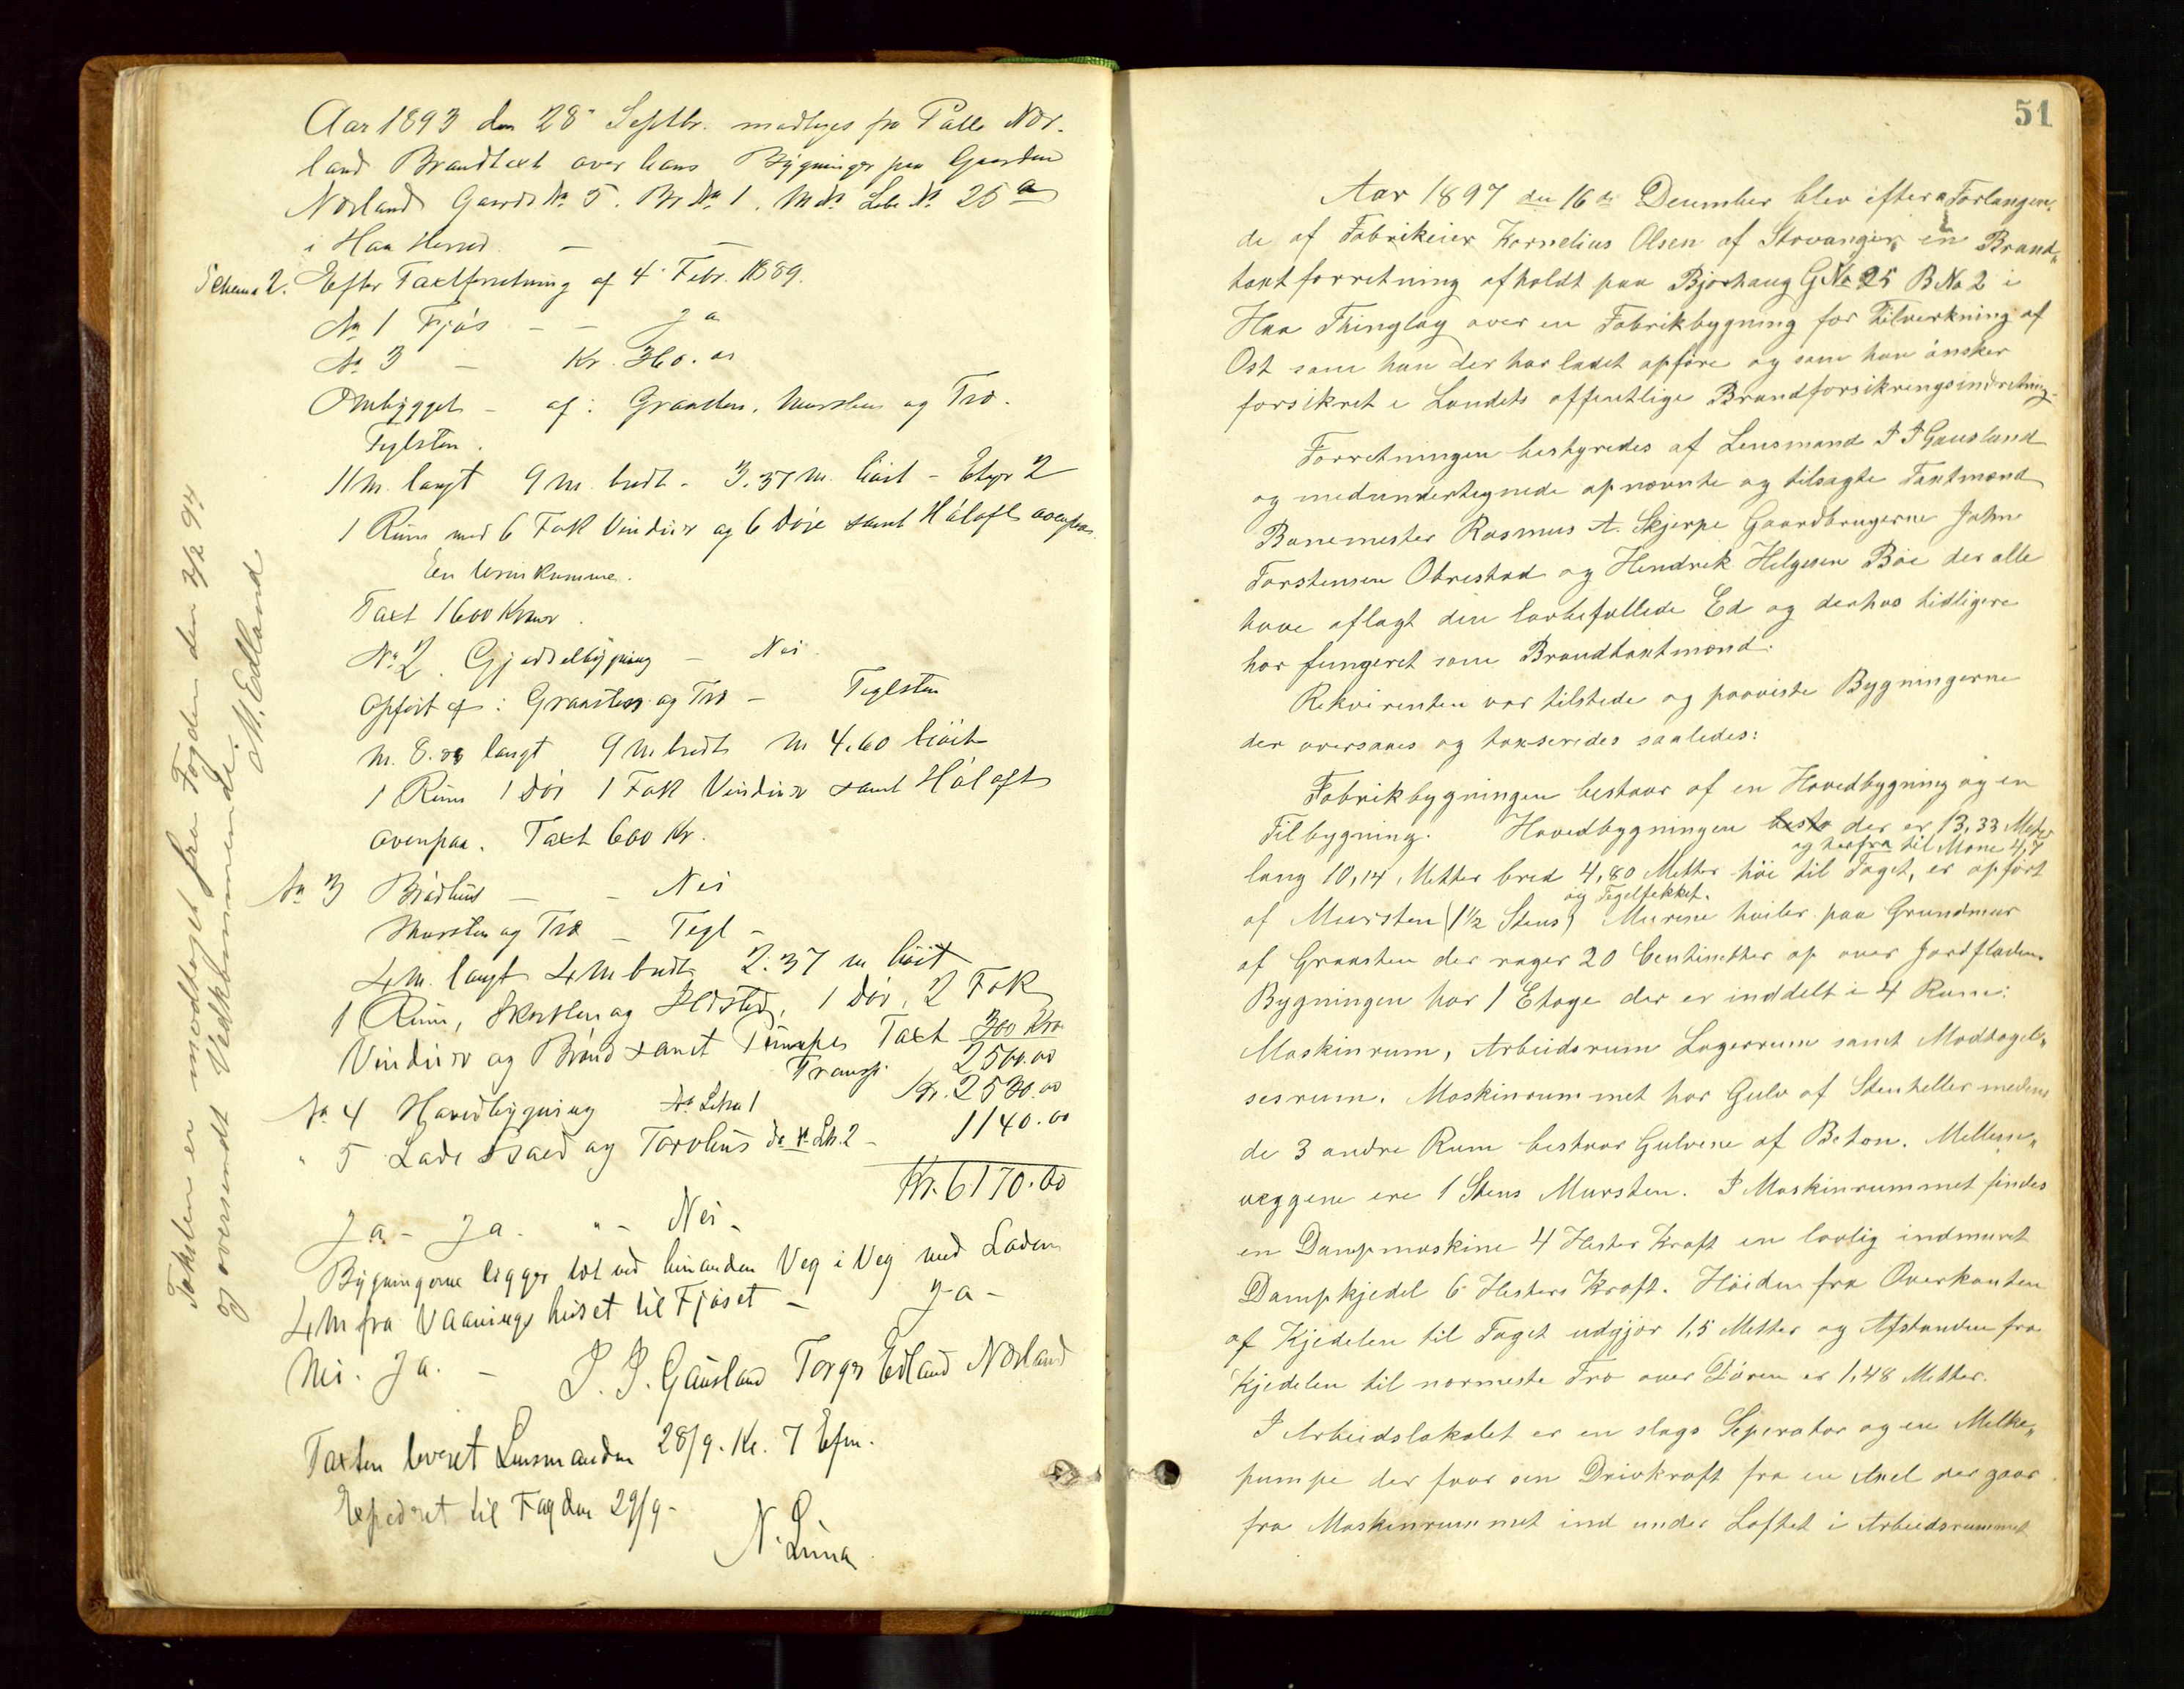 Aar 1893 den 28' Septbr. modtoges fra Palle Nor-
land Brandtaxt over hans Bygninger paa Gaarden
Norland Gaards No 5. Br No 1. Mat Løbe No 25 a
i Haa Herred. — —
Schema 2. Efter Taxtforretning af 4' Febr. 1889.
No 1 Fjøs — — Ja
No 3 — Kr. 360.00
Ombygget — af: Graasten, Mursten og Træ.
Teglsten.
11 M. langt 9 M. bredt - 3.37 M. høit - Etage 2
1 Rum med 6 Fak Vinduer og 6 Døre samt Høloft ovenpaa.
En kumme.
Taxt 1600 Kroner.
No 2. Gjødselbygning — Nei.
Opført af: Graasten og Træ — Teglsten
M. 8.00 langt 9 M. bredt M 4.60 høit
1 Rum 1 Dør 1 Fak Vinduer samt Høloft
ovenpaa. Taxt 600 Kr.
No 3 Brødhus — — Nei
Mursten og Træ — Tegl -
4 M. langt 4 M bredt 2.37 m høit
1 Rum, Skorsten og Ildsted, 1 Dør, 2 Fak
Vinduer og Brønd samt Pumpe Taxt 300 Kro
2500.00
Transp. Kr. 2530.00
No 4 Hovedbygning No Schea 1
" 5 Lade Svaed og Torvhus do Sch. 2 - 1140.00
Kr. 6170.00
Ja - Ja. " - Nei -
Bygningerne ligger tæt ved hinanden Veg i Veg med Laden
4 M fra Vaaningshuset til Fjøset — Ja -
Nei. Ja. — P. P. Gausland Torger Edland Norland
Taxten leveret Lensmanden 28/9. Kl. 7 Efm.
Expedret til Fogden 29/9 -
N. Lima
Taksten er modtaget fra Fogden den 3/2 94
og oversendt Vedkommende.
M. Edland
51
Aar 1897 den 16de December blev efter Forlangen,
de af Fabrikeier Kornelius Olsen af Stavanger en Brand„
taxtforretning afholdt paa Bjorhaug G No 25 B No 2 i
Haa Thinglag over en Fabrikbygning for Tilverkning af
Ost som han der har ladet opføre og som han ønsker
forsikret i Landets offentlige Brandforsikringsindretning.
Forretningen bestyredes af Lensmand P P Gausland
og medundertegnede opnævnte og tilsagte Taxtmænd
Banemester Rasmus A. Skjerpe Gaardbrugerne John
Torstensen Obrestad og Hendrik Helgesen Bøe der alle
have aflagt den lovbefallede Ed og derhos tidligere
har fungeret som Brandtaxtmænd.
Rekvirenten var tilstede og paaviste Bygningerne
der oversaaes og taxseredes saaledes:
Fabrikbygningen bestaar af en Hovedbygning og en
Tilbygning. Hovedbygningen besta der er 13,33 Meter
og herfra til Møne 4,7
lang 10,14 Metter bred 4,80 Metter høi til Taget, er opført
og Tegeltekket.
af Mursten (1½ Stens) Murene hviler paa Grundmur
af Graasten der rager 20 Centimetter op over Jordfladen.
Bygningen har 1 Etage der er inddelt i 4 Rum:
Maskinrum, Arbeidsrum Lagerrum samt Modtagel„
sesrum. Maskinrummet har Gulv af Stenheller medens
de 3 andre Rum bestaar Gulvene af Beton. Mellem„
væggene ere 1 Stens Mursten. I Maskinrummet findes
en Dampmaskine 4 Hester Kraft en lovlig indmuret
Dampkjedel 6 Hesters Kraft. Høiden fra Overkanten
af Kjedelen til Taget udgjør 1,5 Metter og Afstanden fra
Kjedelen til nærmeste Træ over Døren er 1,48 Metter.
I Arbeidslokalet er en slags Seperator og en Melke„
pumpe der faar sin Drivkraft fra en Axel der gaar
fra Maskinrummet ind under Loftet i Arbeidsrummet